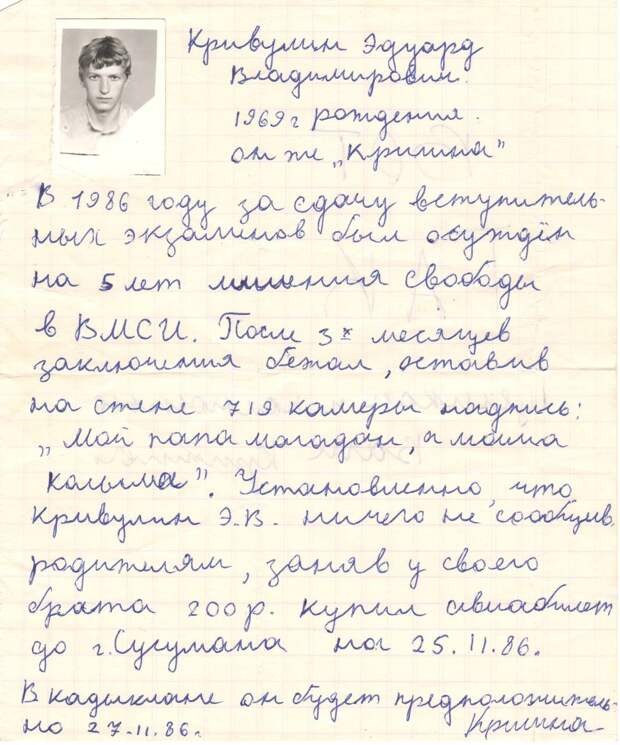 Кривулин Эдуард
Владимирович.
1969 г рождения.
он же „Кришна"
В 1986 году за сдачу вступитель-
ных экзаменов был осуждён
на 5 лет лишения свободы
в ВМСИ. После 3х месяцев
заключения бежал, оставив
на стене 719 камеры надпись:
„Мой папа магадан, а мама
колыма". Установленно, что
Кривулин Э.В. ничего не сообщив
родителям, заняв у своего
брата 200 р. купил авиабилет
до г. Сусумана на 25.11.86.
В кадыкчане он будет предположитель-
но 27.11.86. Кришна